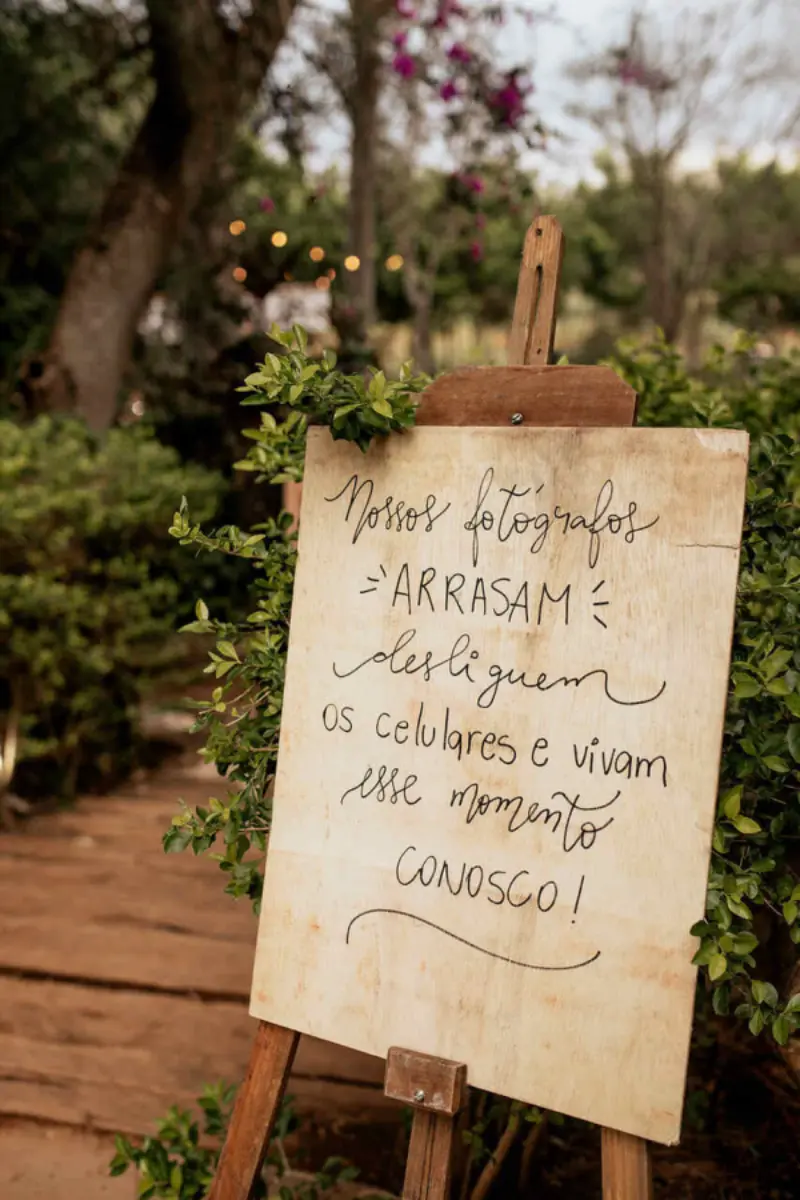 Nossos fotógrafos
ARRASAM
desliguem
os celulares e vivam
esse momento
CONOSCO!